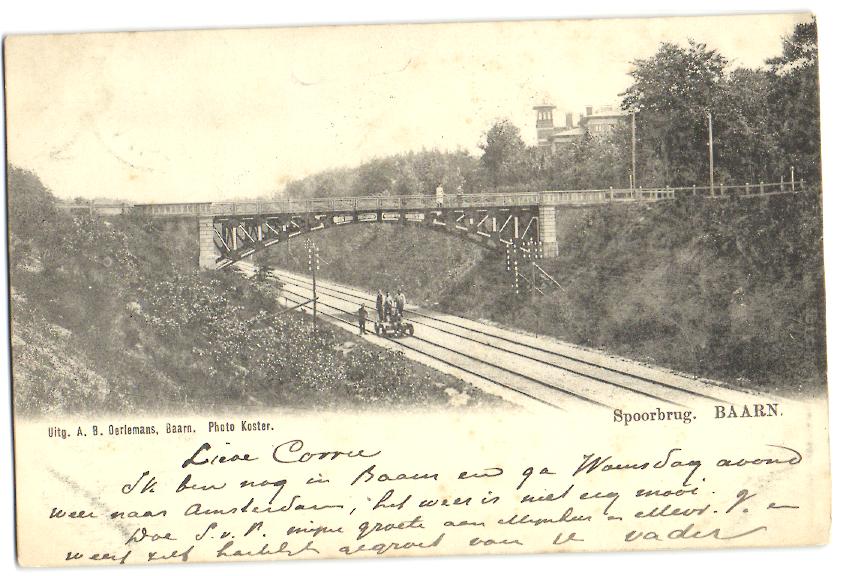 Spoorbrug. BAARN.
Uitg. A. B. Oerlemans, Baarn. Photo Koster.
Lieve Corrie
Ik ben nog in Baarn en ga Woensdag avond
weer naar Amsterdam, het weer is niet erg mooi.
Doe S.v.P. mijne groete aan Mijnheer en Mevr. J. en
weest zelf hartelijk gegroet van je vader